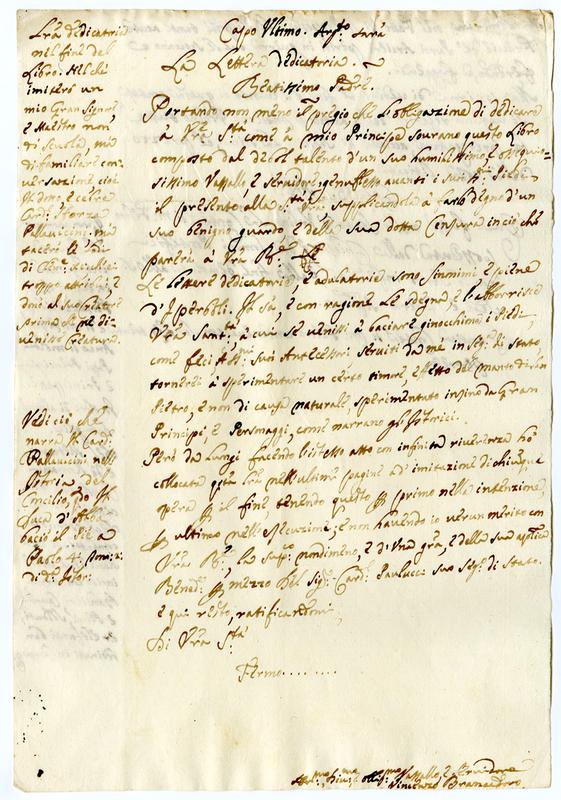 Capo Ultimo. Arg.to sarà
La Lettera dedicatoria.
Beatissimo Padre.
Portando non meno il pregio, che l'obligazione di dedicare
à V.ra S.tà come à mio Principe sourano questo Libro
composto dal debol talento d'un suo humilissimo, e ossequio-
sissimo Vassallo, e servidore, genuflesso auanti i suoi Piedi
il presento alla S.tà V.ra supplicandola à farlo degno d'un
suo benigno guardo, e della sua dotta censura in ciò che
parerà à V.ra B.ne
Le lettere dedicatorie, e adulatorie sono sinonimi, e piene
d'Iperboli. Il sà, e con ragione Le sdegna, e l'abborrisce
V.ra Sant.tà, à cui se venissi à baciare ginocchione i Piedi,
come feci à suoi Antecessori seruiti da me in di stato
tornerei à sperimentare un certo timore, effetto del manto di San
Pietro, e non di causa naturale, sperimentato insino da Gran
Principi, e Personaggi, come narrano gl'Istorici.
Però da lungi facendo l'istesso atto con infinita riuerenza hò
collocata q.ta l'ra nell'ultime pagine ad imitazione di chiunque
opera il fine tenendo questo primo nella intenzione,
ultimo nell'esecuzione, e non hauendo io uerun merito con
V.ra B.ne, La supp.co nondimeno, e d'una gra, e della sua ap.lica
Bened.ne mezzo del Sig.r Card. Paulucci suo Seg.rio di Stato.
e qui resto, ratificandomi,
Di V.ra S.tà
Fermo........
Vassallo, e Seruidore
Vincenzo Brancadoro
L'ra dedicatoria
nel fine del
Libro. Nel che
imiterò un
mio Gran Signore
e Maestro non
di scuola, mà
di familiare con-
uersazione cioè
il dono, e celebre
Card. Sforza
Pallauicini. mà
tacerò le lodi
di
troppo attribuì, e
donò al suo
prima che di-
uenisse creatura.
Vedi ciò, che
narra il Card.
Pallauicini nell'
Istoria del
Concilio, q.do il
Duca d'Alba
baciò il Piè a
Paolo 4.
di d.a Istor: